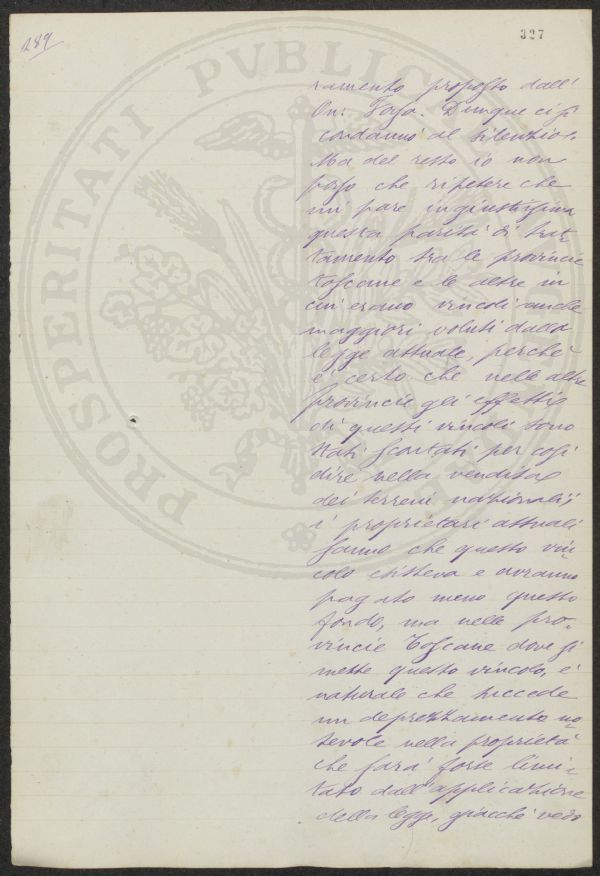 289
327
PROSPERITATI PVBLICAE
ramento proposto dall'
On: Fazo. Dunque ci si
condanna al silenzio.
Ma del resto io non
posso che ripetere che
mi pare ingiustissima
questa parità di trat
tamento tra le provincie
toscane e le altre in
cui erano vincoli anche
maggiori voluti dalla
legge attuale, perchè
è certo che nelle altre
provincie gli effetti
di questi vincoli sono
stati scontati per così
dire nella vendita
dei terreni nazionali;
i proprietari attuali
sanno che questo vin
colo esisteva e avranno
pagato meno questo
fondo, ma nelle pro-
vincie Toscane dove si
mette questo vincolo, è
naturale che succede
un deprezzamento no
tevole nella proprietà
che sarà forse limi-
tato dall'applicazione
della legge, giacchè vedo